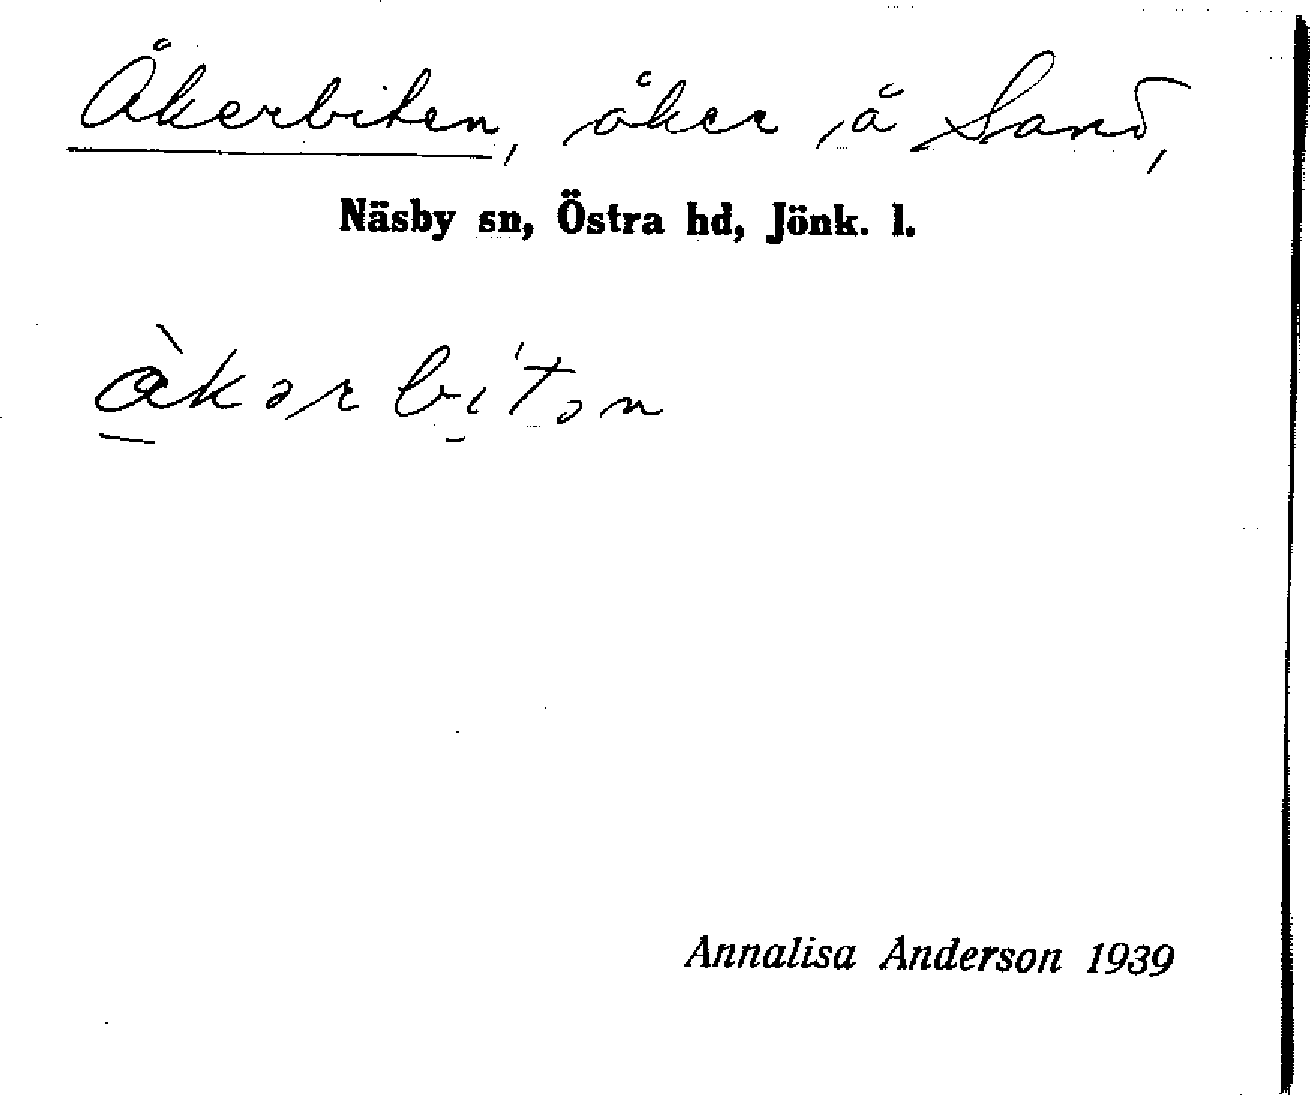 Åkerbiten, åker å Sand,
Näsby sn, Östra hd, Jönk. l.
åkərbitən
Annalisa Anderson 1939